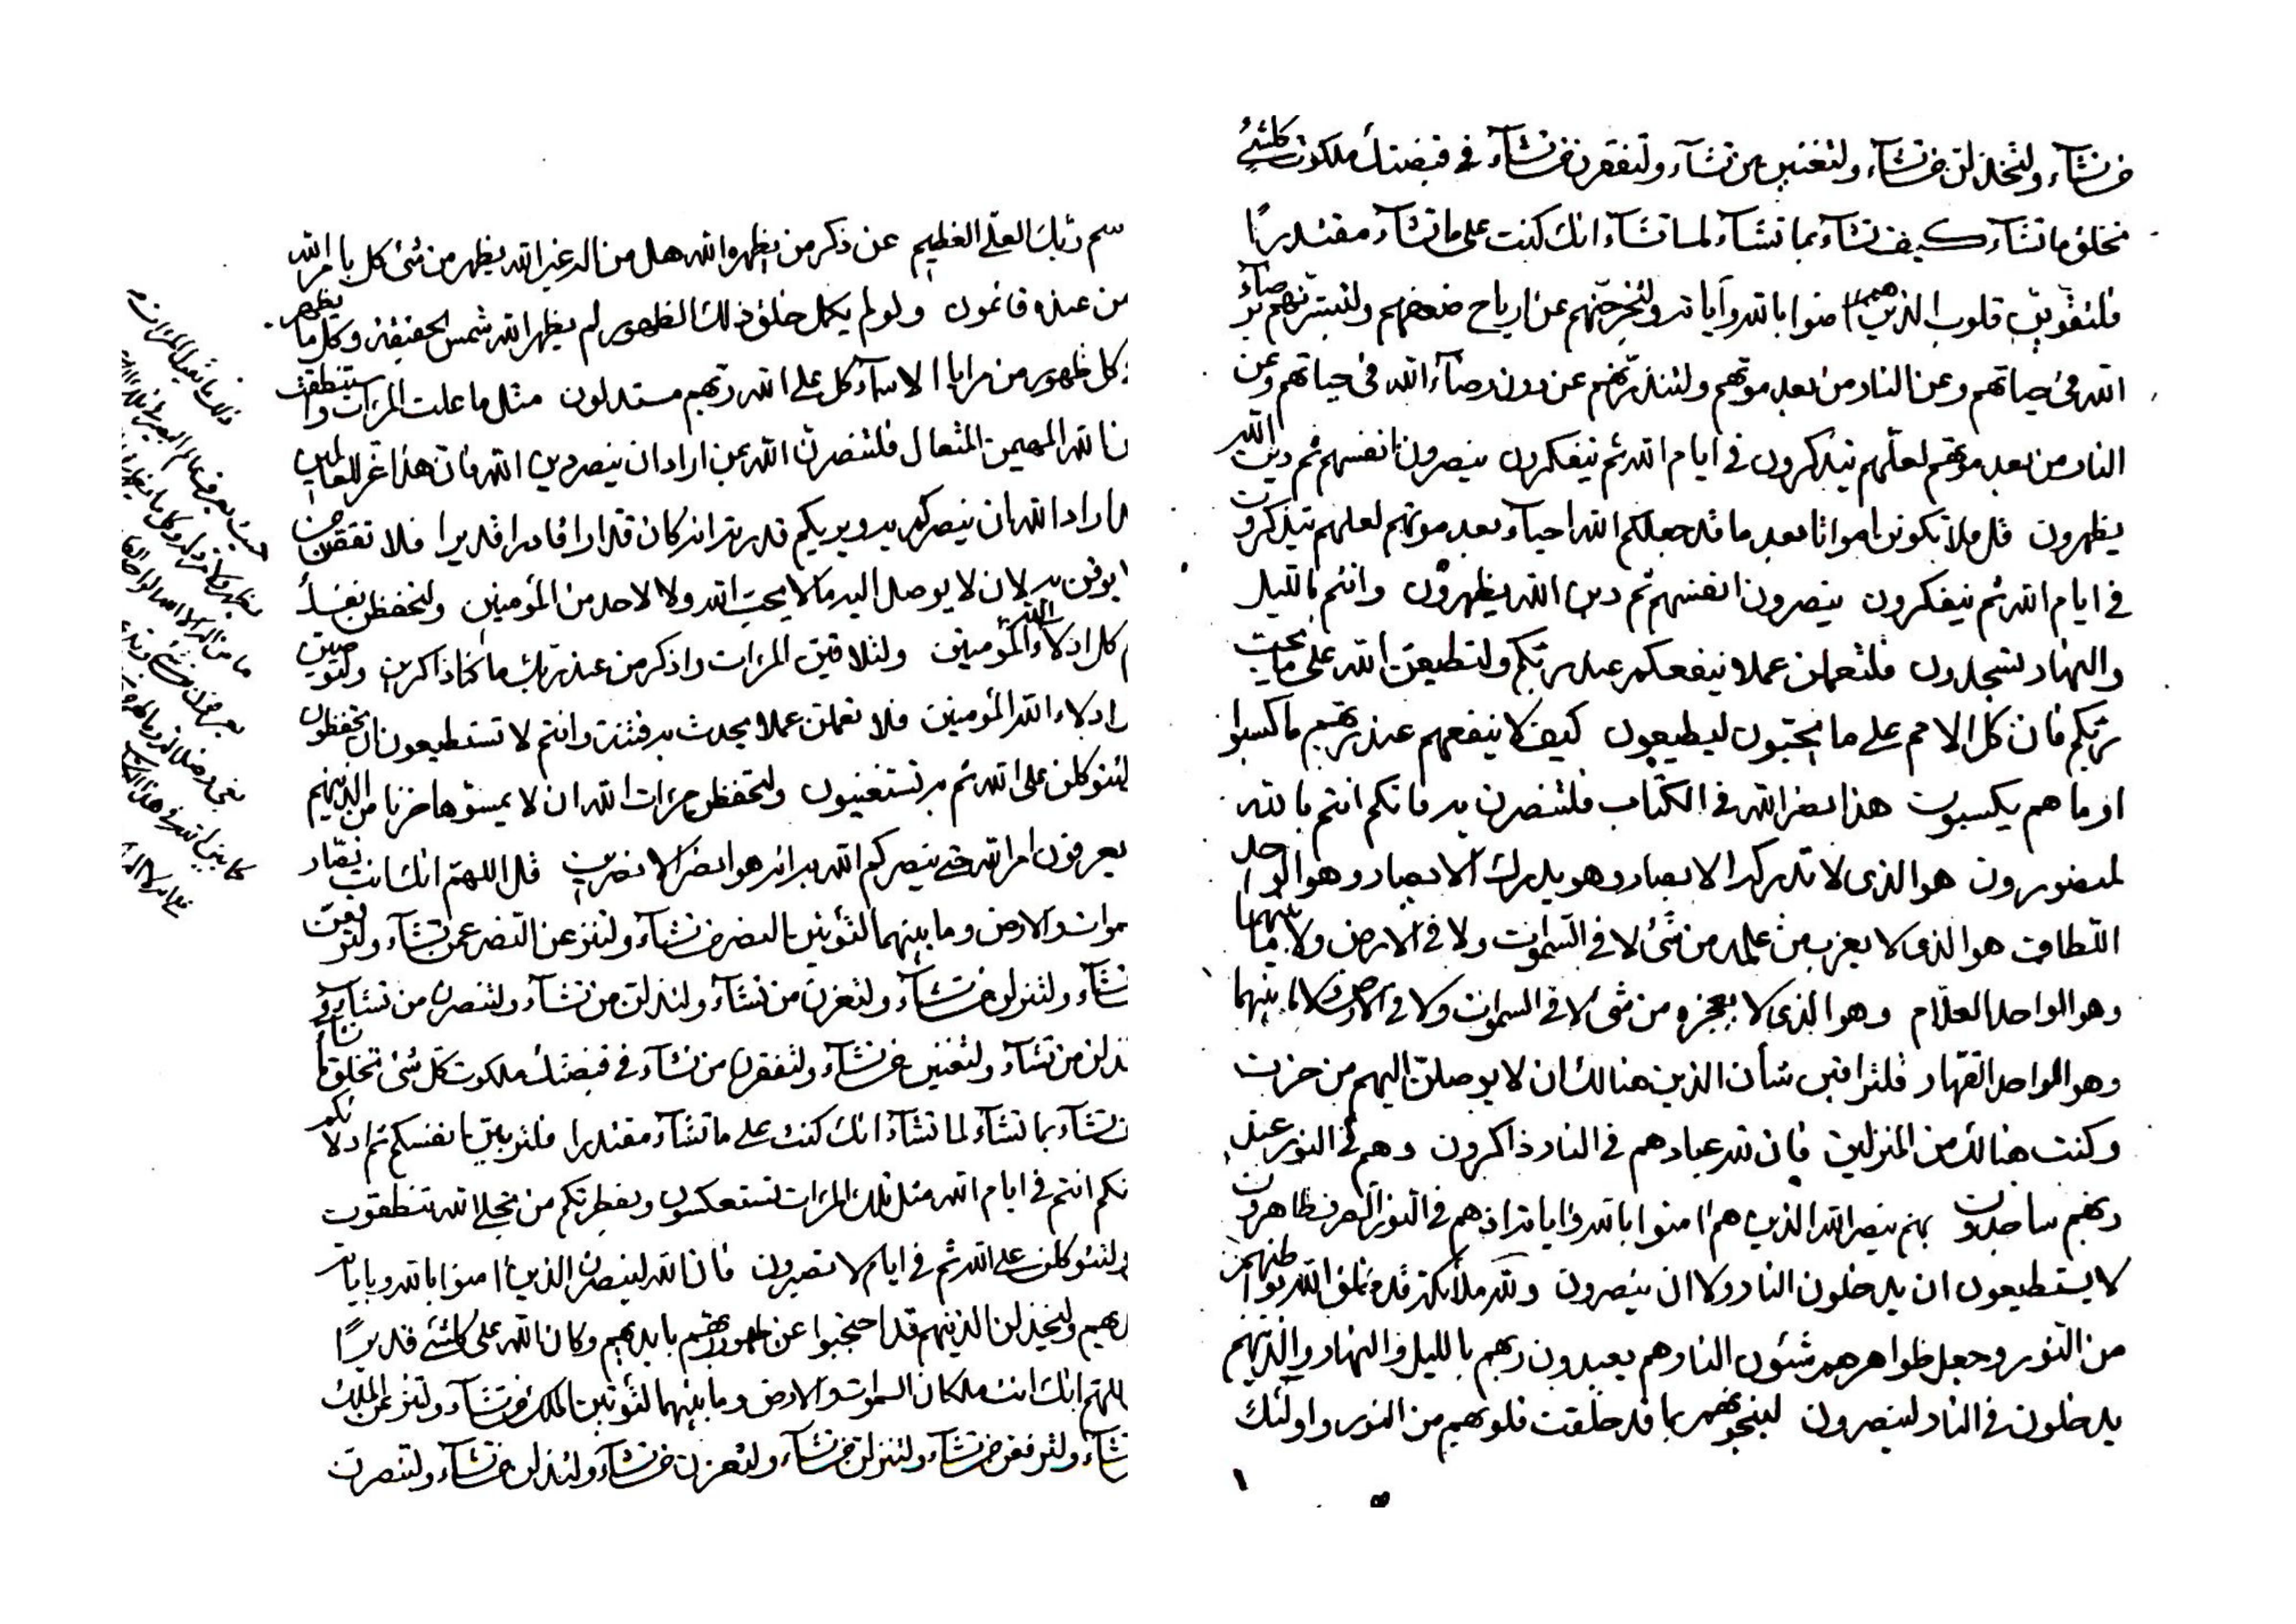 من تشآء ولتخذلن من تشآء ولتغنين من تشآء ولتفقرن من تشآء في قبضتك ملكوت كلشئ
تخلق ما تشآء كيف تشآء بما تشآء لما تشآء انك كنت على ما تشآء مقتدرًا
فلتقوين قلوب الذينهم امنوا بالله وآياته ولتخرجنهم عن ارياح ضعفهم ولتبشرنهم برضآء
الله في حياتهم وعن النار من بعد موتهم ولتنذرنهم عن دون رضآء الله في حياتهم وعن
النار من بعد موتهم لعلهم يتذكرون في ايام الله ثم يتفكرون ينصرون انفسهم ثم دين الله
يظهرون قل فلا تكونن امواتا بعد ما قد جعلكم الله احيآء بعد موتهم لعلهم يتذكرون
في ايام الله ثم يتفكرون ينصرون انفسهم ثم دين الله يظهرون وانتم بالليل
والنهار لتسجدون فلتعملن عملا ينفعكم عند ربكم ولتطيعن الله على ما يحب
ربكم فان كل الامم على ما يحبون ليطيعون كيف لا ينفعهم عند ربهم ما كسبوا
او ما هم يكسبون هذا نصر الله في الكتاب فلتنصرن به فانكم انتم بالله
لمنصورون هو الذي لا تدركه الابصار وهو يدرك الابصار وهو الواحد
اللطاف هو الذي لا يعزب من علمه من شئ لا في السموات ولا في الارض ولا ما بينهما
وهو الواحد العلام وهو الذي لا يعجزه من شئ لا في السموات ولا في الارض ولا ما بينهما
وهو الواحد القهار فلتراقبن شأن الذين هنالك ان لا يوصلن اليهم من حزن
وكنت هنالك من المنزلين فان لله عبادهم في النار ذاكرون وهم في النور عند
ربهم ساجدون بهم ينصر الله الذين هم امنوا بالله وآياته اذ هم في النور
لا يستطيعون ان يدخلون النار ولا ان ينصرون ولله ملائكة قد خلق الله بواطنهم
من النور وجعل ظواهرهم شئون النار وهم يعبدون ربهم بالليل والنهار والذينهم
يدخلون في النار لينصرون لينجونهم بما قد خلقت قلوبهم من النور واولئك
سم ربك العلي العظيم عن ذكر من يظهره الله هل من اله غير الله يظهر من شئ كل بامر الله
من عنده قائمون ولو لم يكمل خلق ذلك الظهور لم يظهر الله شمس الحقيقة وكل ما يظهر
كل ظهور من مرايا الاسمآء كل على الله ربهم مستدلون مثل ما علمت المرآت واستنطقت
ن الله المهيمن المتعال فلتنصرن الله عن اراد ان ينصر دين الله فان هذا عز للعالمين
اراد الله ان ينصركم به ويربيكم قدرته انه كان قدارا قادرا قديرا فلا تفقهن من
يوقن به لان لا يوصل اليه ما لا يحب الله ولا لاحد من المؤمنين ولتحفظن نفسك
كل ادلاء الله المؤمنين ولتلاقين المرآت واذكر من عند ربك ما كنا ذاكرين ولتوصين
ادلاء الله المؤمنين فلا تعملن عملا يحدث به فتنة وانتم لا تستطيعون ان تحفظون
لتتوكلن على الله ثم به تستغنيون ولتحفظن مرآت الله ان لا يمسوها حزنا من الذينهم
يعرفون امر الله حتى ينصركم الله به انه هو انصر الانصرين قل اللهم انك انت نصار
موات والارض وما بينهما لتؤتين النصر من تشآء ولتنزعن النصر عمن تشآء ولترفعن
تشآء ولتنزلن من تشآء ولتعزن من تشآء ولتذلن من تشآء ولتنصرن من تشآء و
ذلن من تشآء ولتغنين من تشآء ولتفقرن من تشآء في قبضتك ملكوت كل شئ تخلق ما تشآء
تشآء بما تشآء لما تشآء انك كنت على ما تشآء مقتدرا فلتربين انفسكم ثم ادلائكم
نكم انتم في ايام الله مثل تلك المرآت تستعكسون وبفطرتكم من تجلي الله تنطقون
ولتتوكلن على الله ثم في ايام لا تصبرون فان الله لينصرن الذين امنوا بالله وباياته
وليخذلن الذينهم قد احتجبوا عن ظهور ربهم بايديهم وكان الله على كلشئ قديرًا
اللهم انك انت ملكان السموات والارض وما بينهما لتؤتين الملك من تشآء ولتنزعن الملك
تشآء ولترفعن من تشآء ولتنزلن من تشآء ولتعزن من تشآء ولتذلن من تشآء ولتنصرن